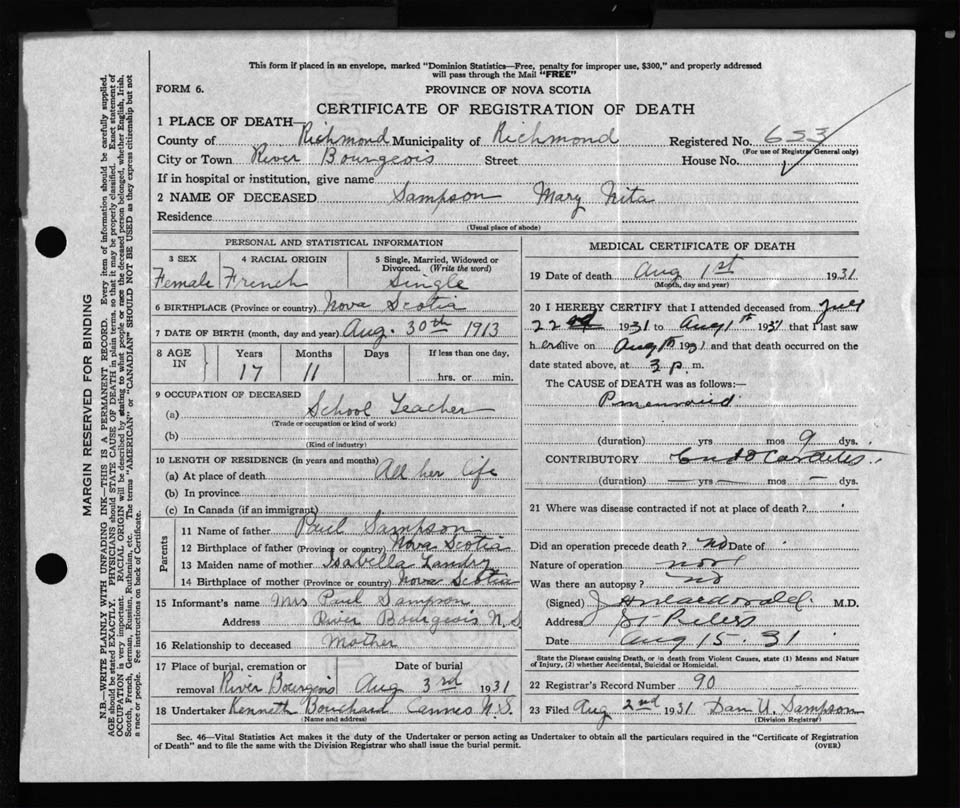 This form if placed in an envelope, marked "Dominion Statistics—Free, penalty for improper use, $300," and properly addressed
will pass through the Mail "FREE"
FORM 6.
PROVINCE OF NOVA SCOTIA
CERTIFICATE OF REGISTRATION OF DEATH
1 PLACE OF DEATH—
County of Richmond Municipality of Richmond Registered No. 653
(For use of Registrar General only)
City or Town River Bourgeois Street House No.
If in hospital or institution, give name
2 NAME OF DECEASED Sampson Mary Nita
Residence
(Usual place of abode)
PERSONAL AND STATISTICAL INFORMATION
3 SEX 4 RACIAL ORIGIN 5 Single, Married, Widowed or
Divorced. (Write the word)
Female French Single
6 BIRTHPLACE (Province or country) Nova Scotia
7 DATE OF BIRTH (month, day and year) Aug. 30th 1913
8 AGE IN Years Months Days If less than one day,
17 11 hrs. or min.
9 OCCUPATION OF DECEASED
(a) School Teacher
(Trade or occupation or kind of work)
(b)
(Kind of industry)
10 LENGTH OF RESIDENCE (in years and months)
(a) At place of death All her life
(b) In province
(c) In Canada (if an immigrant)
Parents
11 Name of father Paul Sampson
12 Birthplace of father (Province or country) Nova Scotia
13 Maiden name of mother Isabella Landry
14 Birthplace of mother (Province or country) Nova Scotia
15 Informant's name Mrs Paul Sampson
Address River Bourgeois N.S
16 Relationship to deceased Mother
17 Place of burial, cremation or Date of burial
removal River Bourgeois Aug 3rd 1931
18 Undertaker Kenneth Bouchard Cannes N.S.
(Name and address)
MEDICAL CERTIFICATE OF DEATH
19 Date of death Aug 1st 1931
(Month, day and year)
20 I HEREBY CERTIFY that I attended deceased from July
22 1931 to Aug 1st 1931 that I last saw
her alive on Aug 1st 1931 and that death occurred on the
date stated above, at 3 p. m.
The CAUSE OF DEATH was as follows:—
(duration) yrs mos 9 dys.
CONTRIBUTORY Endocarditis
(duration) — yrs — mos — dys.
21 Where was disease contracted if not at place of death?
Did an operation precede death? no Date of
Nature of operation
Was there an autopsy? no
(Signed) M.D.
Address St Peters
Date Aug 15. 31
State the Disease causing Death, or in death from Violent Causes, state (1) Means and Nature
of Injury, (2) whether Accidental, Suicidal or Homicidal.
22 Registrar's Record Number 90
23 Filed Aug 2nd 1931 Dan U. Sampson
(Division Registrar)
Sec. 46—Vital Statistics Act makes it the duty of the Undertaker or person acting as Undertaker to obtain all the particulars required in the "Certificate of Registration
of Death" and to file the same with the Division Registrar who shall issue the burial permit.
(OVER)
MARGIN RESERVED FOR BINDING
N.B.—WRITE PLAINLY WITH UNFADING INK—THIS IS A PERMANENT RECORD. Every item of information should be carefully supplied.
AGE should be stated EXACTLY. PHYSICIANS should STATE CAUSE OF DEATH in plain terms, so that it may be properly classified. Exact statement of
OCCUPATION is very important. RACIAL ORIGIN will be described by stating to what people or race the deceased person belonged, whether English, Irish,
Scotch, French, German, Russian, Ruthenian, etc. The terms "AMERICAN" or "CANADIAN" SHOULD NOT BE USED as they express citizenship but not
a race or people. See instructions on back of Certificate.